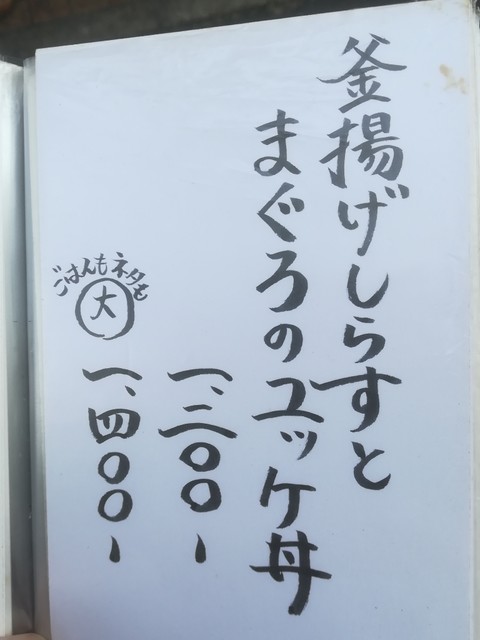 釜揚げしらすと
まぐろのユッケ丼
一、二〇〇-
ごはんもネタも
大
一、四〇〇-